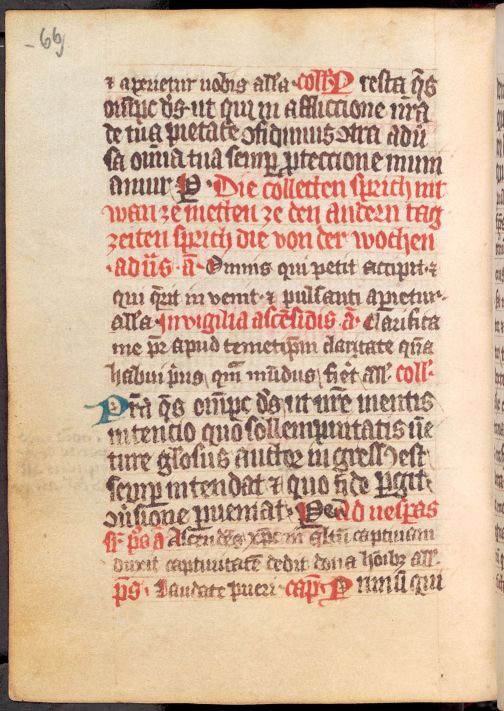 66
⁊ aperietur nobis alla · coll̄ Presta q̄s
om̄pc ds̄ ut qui in affliccione nr̄a
de tua pietate ꝯfidimus ꝯtra adū
sa om̄ia tua semp̄ ꝓteccione mum
amur P · Die collecten sprich nit
wan ze metten ze den andern tag
zeiten sprich die von der wochen
· ad ūs · a · Omnis qui petit accipit · ⁊
qui q̄rit invenit · ⁊ pulsanti apīetur ·
alla · In vigilia ascēsiōis · a · Clarifica
me pr̄ apud temetip̄m claritate quā
habui p̄us qm̄ mūdus fīet all · coll ·
Prā q̄s om̄pc ds̄ ut nr̄e mentis
intencio quo sollempnitatis ūe
ture gl̄osus auctor ingressꝰ est
semp̄ intendat ⁊ quo fide pergit ·
ꝯūsione ꝑueniat · P Ad uesp̄as
sr̄ p̄s a Ascendēs xp̄c in altū captiuam
duxit captiuitatē dedit dona hoībꝫ all ·
p̄s · Laudate pueri · cap̄ · Primū qui